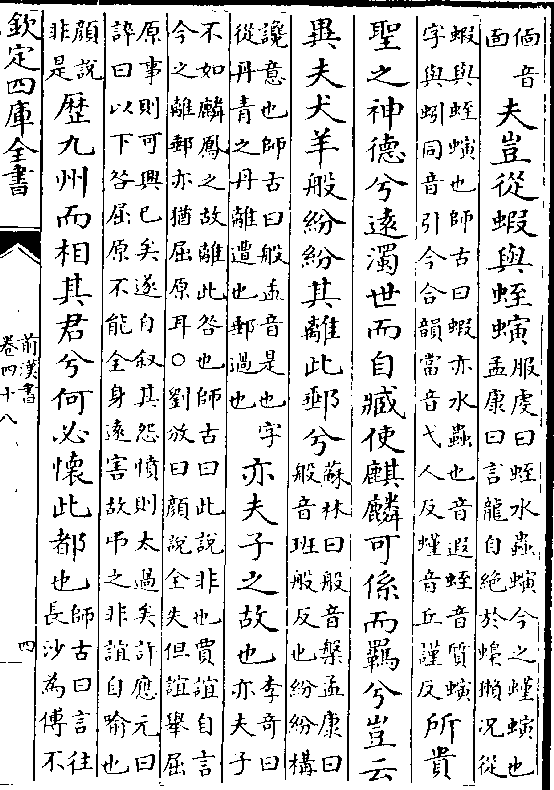 偭音
面
夫豈從蝦與蛭螾
服虔曰蛭水蟲螾今之螼螾也
孟康曰言龍自絶於蟂獺况從
蝦與蛭螾也師古曰蝦亦水蟲也音遐蛭音質螾
字與蚓同音引今合韻當音弋人反螼音丘謹反
所貴
聖之神德兮遠濁世而自臧使麒麟可係而羈兮豈云
異夫犬羊般紛紛其離此郵兮
蘇林曰般音槃孟康曰
般音班般反也紛紛構
讒意也師古曰般孟音是也字
從丹青之丹離遭也郵過也
亦夫子之故也
李奇曰
亦夫子
不如麟鳳之故離此咎也師古曰此說非也賈誼自言
今之離郵亦猶屈原耳○劉攽曰顔說全失但誼舉屈
原事則可興已矣遂自叙其怨憤則太過矣許應元曰
誶曰以下咎屈原不能全身遠害故弔之非誼自喻也
顔說
非是
歷九州而相其君兮何必懷此都也
師古曰言往
長沙為傅不
欽定四庫全書
前漢書
卷四十八
四